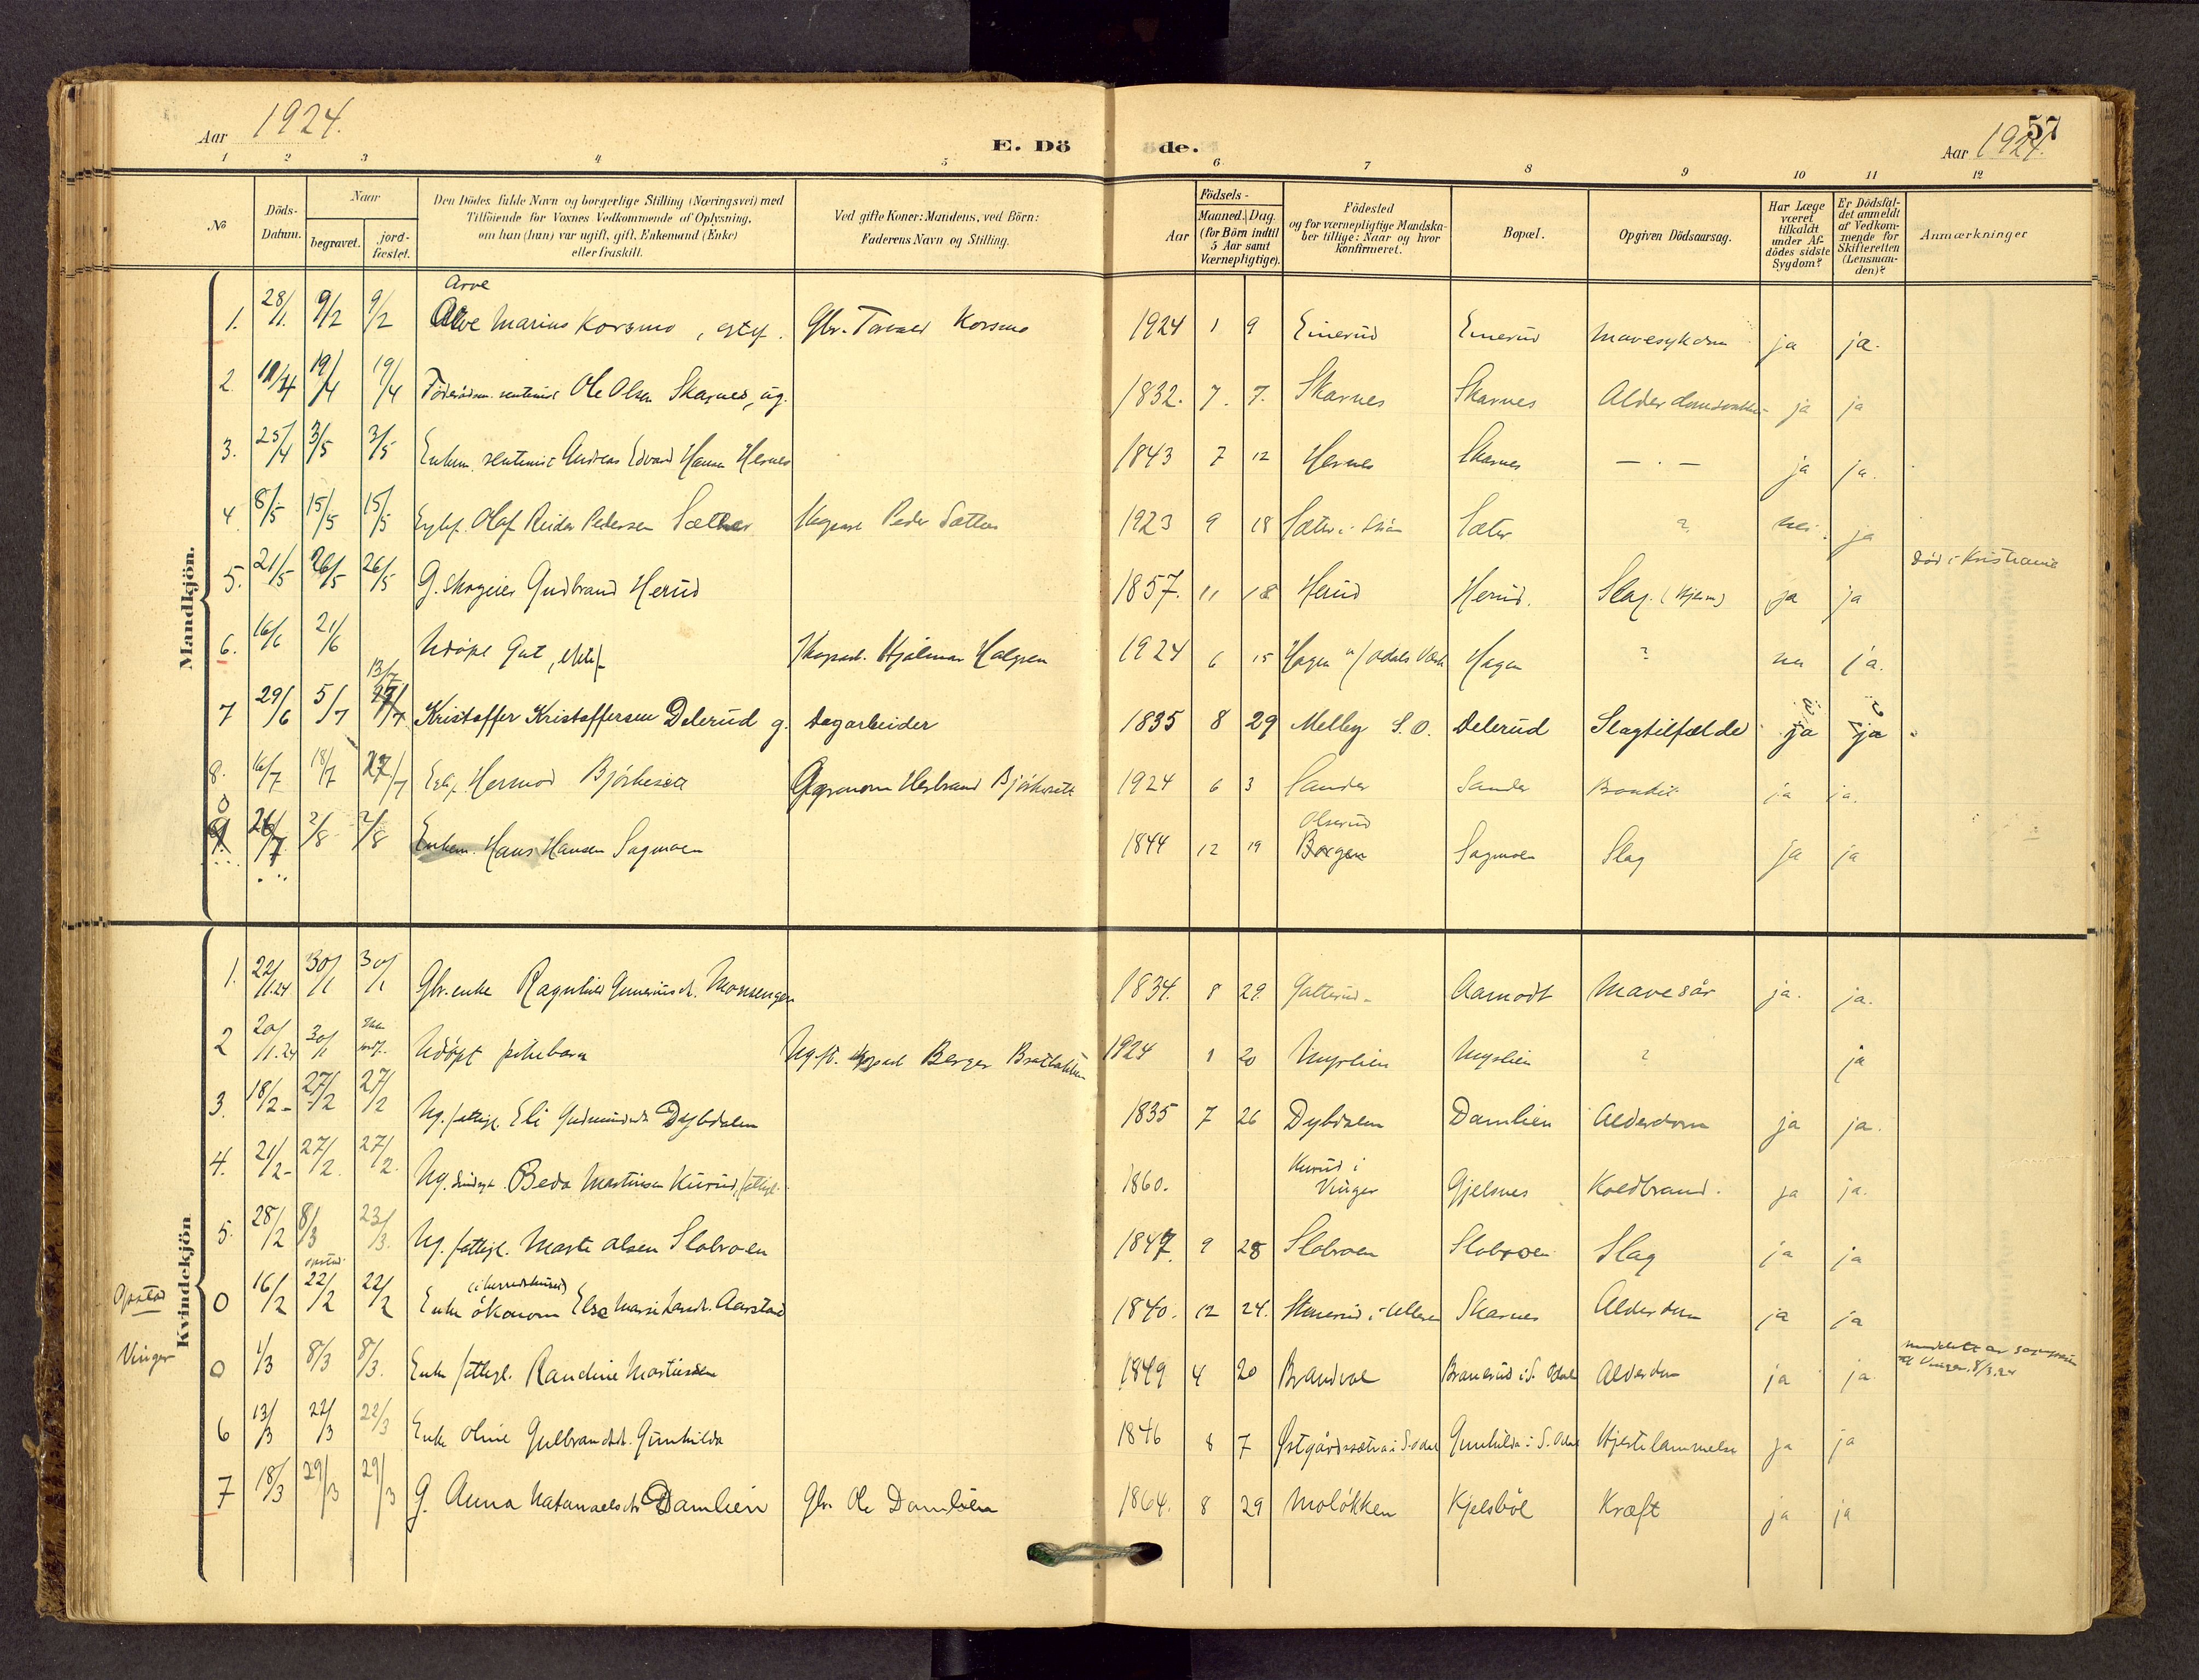 Aar 1924.
E. Döde.
57
Aar 1924.
1 2 3 4 5 6 7 8 9 10 11 12
№
Döds-Datum.
Naar
begravet.
jord-fæstet.
Den Dödes fulde Navn og borgerlige Stilling (Næringsvei) med
Tilföiende for Voxnes Vedkommende af Oplysning,
om han (hun) var ugift, gift, Enkemand (Enke)
eller fraskilt.
Ved gifte Koner: Mandens, ved Börn:
Faderens Navn og Stilling.
Födsels-
Aar
Maaned. Dag.
(for Börn indtil
5 Aar samt
Værnepligtige).
Födested
og for værnepligtige Mandska-
ber tillige: Naar og hvor
konfirmeret.
Bopæl.
Opgiven Dödsaarsag.
Har Læge
været
tilkaldt
under Af-
dödes sidste
Sygdom?
Er Dödsfal-
det anmeldt
af Vedkom-
mende for
Skifteretten
(Lensman-
den)?
Anmærkninger
Mandkjön.
Arve
1. 28/1. 9/2 9/2 Marius Korsmo, Gbr. Korsmo 1924 1 9 Einerud Einerud Mavesykdom ja ja.
2 19/4 19/4 Ole Olsen Skarnes, ug. 1832. 7. 7. Skarnes Skarnes ja ja
3. 25/4 3/5 3/5 Enkem. rentenist Andreas Edvard Hansen Hernes 1843 7 12 Hernes Skarnes — . — ja ja.
4 8/5 15/5 15/5 Olaf Reidar Pedersen Sæther Peder Sæther 1923 9 18 Sæter Sæter ? nei. ja
5. 21/5 26/5 26/5 G. skogeier Gudbrand Herud 1857. 11 18 Herud Herud. Slag. (Hjern) ja ja död i Kristiania
6. 16/6 21/6 Udöpt Gut, Hjalmar 1924 6 15 Hagen Odals Værk Hagen ? nei ja.
13/7
7 29/6 5/7 Kristoffer Kristoffersen Delerud g. Dagarbeider 1835 8 29 Melby S.O. Delerud Slagtilfælde ja ja
8. 16/7 18/7 27/7 Hermod Björkeset Herbrand 1924 6 3 Sander Sander ja ja.
9 26/7 2/8 2/8 Enkem. Hans Hansen Sagmoen 1844 12 19 Olserud Borgen Sagmoen Slag ja ja
Kvindekjön
1. 22/1.24 30/1 30/1 Gbr. enke Ragnhild Monsengen 1834. 8 29. Aamodt Mavesår ja. ja.
2 20/1.24 30/1 Udöpt pikebarn Berger 1924 1 20 Myrlien Myrlien ? ja
3. 18/2 27/2 27/2 Ug. Eli Dybdalen 1835 7 26 Dybdalen Damlien Alderdom ja ja.
4. 21/2 27/2. 27/2. Ug. Beda Martinsen Kurud, 1860. Kurud i Vinger Gjelsnes Koldbrand. ja ja.
5. 28/2 8/3 23/3. Ug. Marte Olsen Slobroen 1847. 9 28 Slobroen Slobroen Slag ja ja
Opstad 0 16/2 22/2 22/2 Enke ökonom Else Marie Aarstad 1840. 12 24. Skarnes Alderdom ja ja
Vinger 0 1/3 8/3 8/3. Enke Randine Martinsen 1849 4 20 Brandval Branerud i S. Odal Alderdom ja ja Vinger. 8/3.24
6 13/3 22/3 22/3 Enke Oline Gulbrandsdt. Gunhilds 1846 8 7 Østgårdssætra i S. Odal Gunhilds i S. Odal Hjertelammelse ja ja
7 18/3 29/3 29/3 G. Anna Natanaelsdt Damlien Gbr. Ole Damlien 1864. 8 29 Molökken Kjelsböl Kræft ja ja